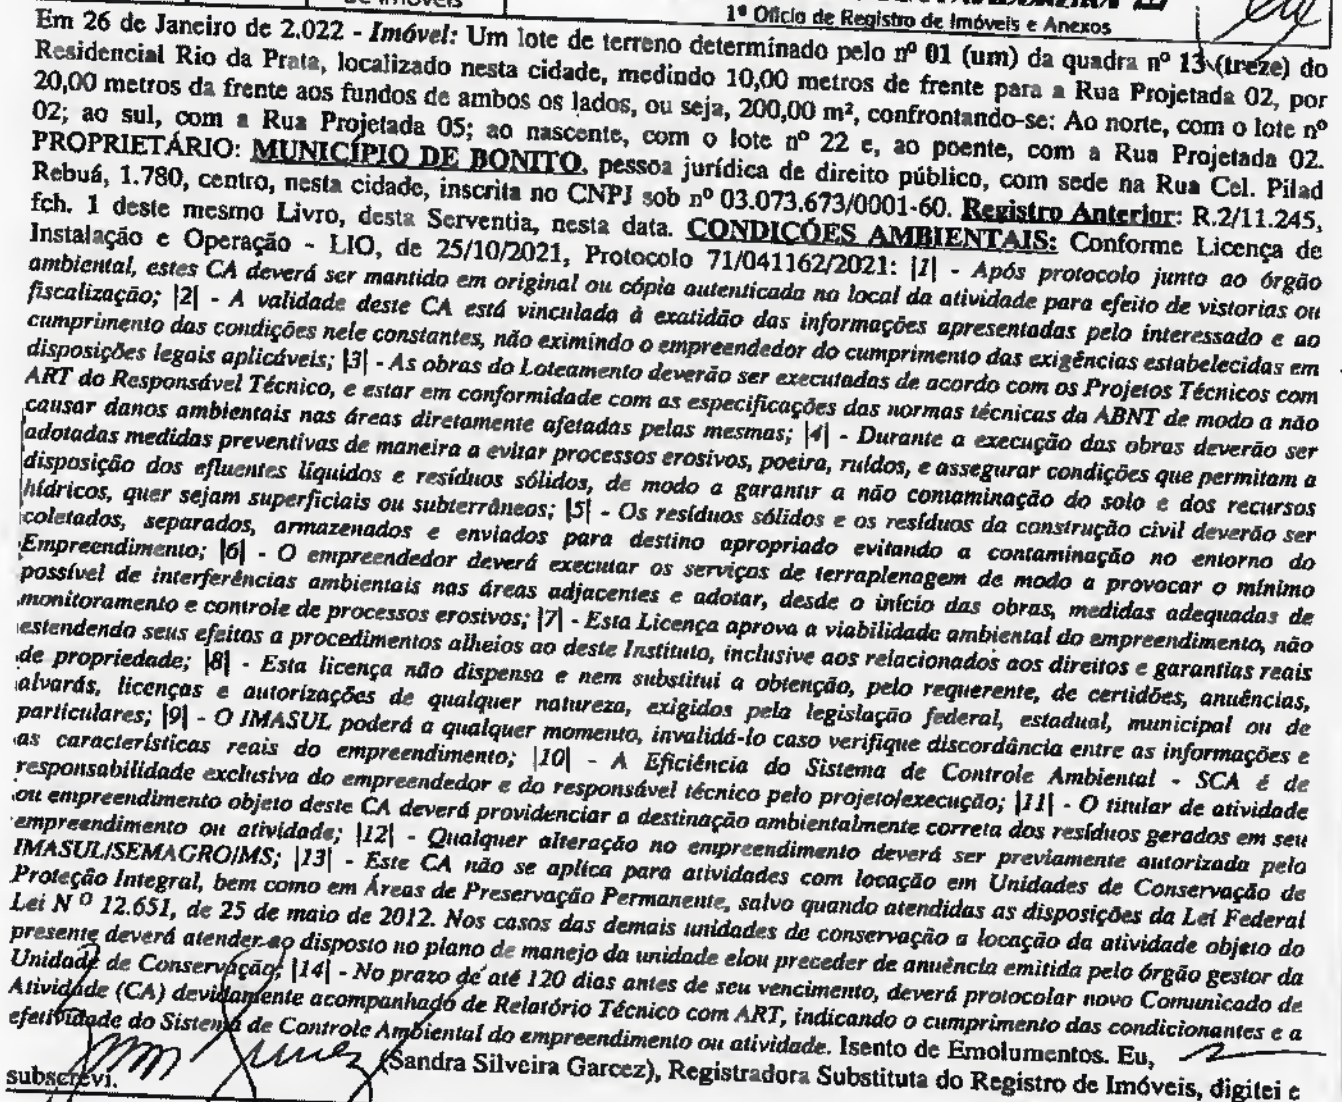 de Imóveis
1º Ofício de Registro de Imóveis e Anexos
Em 26 de Janeiro de 2.022 - Imóvel: Um lote de terreno determinado pelo nº 01 (um) da quadra nº 13 (treze) do
Residencial Rio da Prata, localizado nesta cidade, medindo 10,00 metros de frente para a Rua Projetada 02, por
20,00 metros da frente aos fundos de ambos os lados, ou seja, 200,00 m², confrontando-se: Ao norte, com o lote nº
02; ao sul, com a Rua Projetada 05; ao nascente, com o lote nº 22 e, ao poente, com a Rua Projetada 02.
PROPRIETÁRIO: MUNICÍPIO DE BONITO, pessoa jurídica de direito público, com sede na Rua Cel. Pilad
Rebuá, 1.780, centro, nesta cidade, inscrita no CNPJ sob nº 03.073.673/0001-60. Registro Anterior: R.2/11.245,
fch. 1 deste mesmo Livro, desta Serventia, nesta data. CONDIÇÕES AMBIENTAIS: Conforme Licença de
Instalação e Operação - LIO, de 25/10/2021, Protocolo 71/041162/2021: |1| - Após protocolo junto ao órgão
ambiental, estes CA deverá ser mantido em original ou cópia autenticada no local da atividade para efeito de vistorias ou
fiscalização; |2| - A validade deste CA está vinculada à exatidão das informações apresentadas pelo interessado e ao
cumprimento das condições nele constantes, não eximindo o empreendedor do cumprimento das exigências estabelecidas em
disposições legais aplicáveis; |3| - As obras do Loteamento deverão ser executadas de acordo com os Projetos Técnicos com
ART do Responsável Técnico, e estar em conformidade com as especificações das normas técnicas da ABNT de modo a não
causar danos ambientais nas áreas diretamente afetadas pelas mesmas; |4| - Durante a execução das obras deverão ser
adotadas medidas preventivas de maneira a evitar processos erosivos, poeira, ruídos, e assegurar condições que permitam a
disposição dos efluentes líquidos e resíduos sólidos, de modo a garantir a não contaminação do solo e dos recursos
hídricos, quer sejam superficiais ou subterrâneos; |5| - Os resíduos sólidos e os resíduos da construção civil deverão ser
coletados, separados, armazenados e enviados para destino apropriado evitando a contaminação no entorno do
Empreendimento; |6| - O empreendedor deverá executar os serviços de terraplenagem de modo a provocar o mínimo
possível de interferências ambientais nas áreas adjacentes e adotar, desde o início das obras, medidas adequadas de
monitoramento e controle de processos erosivos; |7| - Esta Licença aprova a viabilidade ambiental do empreendimento, não
estendendo seus efeitos a procedimentos alheios ao deste Instituto, inclusive aos relacionados aos direitos e garantias reais
de propriedade; |8| - Esta licença não dispensa e nem substitui a obtenção, pelo requerente, de certidões, anuências,
alvarás, licenças e autorizações de qualquer natureza, exigidos pela legislação federal, estadual, municipal ou de
particulares; |9| - O IMASUL poderá a qualquer momento, invalidá-lo caso verifique discordância entre as informações e
as características reais do empreendimento; |10| - A Eficiência do Sistema de Controle Ambiental - SCA é de
responsabilidade exclusiva do empreendedor e do responsável técnico pelo projeto/execução; |11| - O titular de atividade
ou empreendimento objeto deste CA deverá providenciar a destinação ambientalmente correta dos resíduos gerados em seu
empreendimento ou atividade; |12| - Qualquer alteração no empreendimento deverá ser previamente autorizada pelo
IMASUL/SEMAGRO/MS; |13| - Este CA não se aplica para atividades com locação em Unidades de Conservação de
Proteção Integral, bem como em Áreas de Preservação Permanente, salvo quando atendidas as disposições da Lei Federal
Lei Nº 12.651, de 25 de maio de 2012. Nos casos das demais unidades de conservação a locação da atividade objeto do
presente deverá atender ao disposto no plano de manejo da unidade e\ou preceder de anuência emitida pelo órgão gestor da
Unidade de Conservação; |14| - No prazo de até 120 dias antes de seu vencimento, deverá protocolar novo Comunicado de
Atividade (CA) devidamente acompanhado de Relatório Técnico com ART, indicando o cumprimento das condicionantes e a
efetividade do Sistema de Controle Ambiental do empreendimento ou atividade. Isento de Emolumentos. Eu,
(Sandra Silveira Garcez), Registradora Substituta do Registro de Imóveis, digitei e
subscrevi.